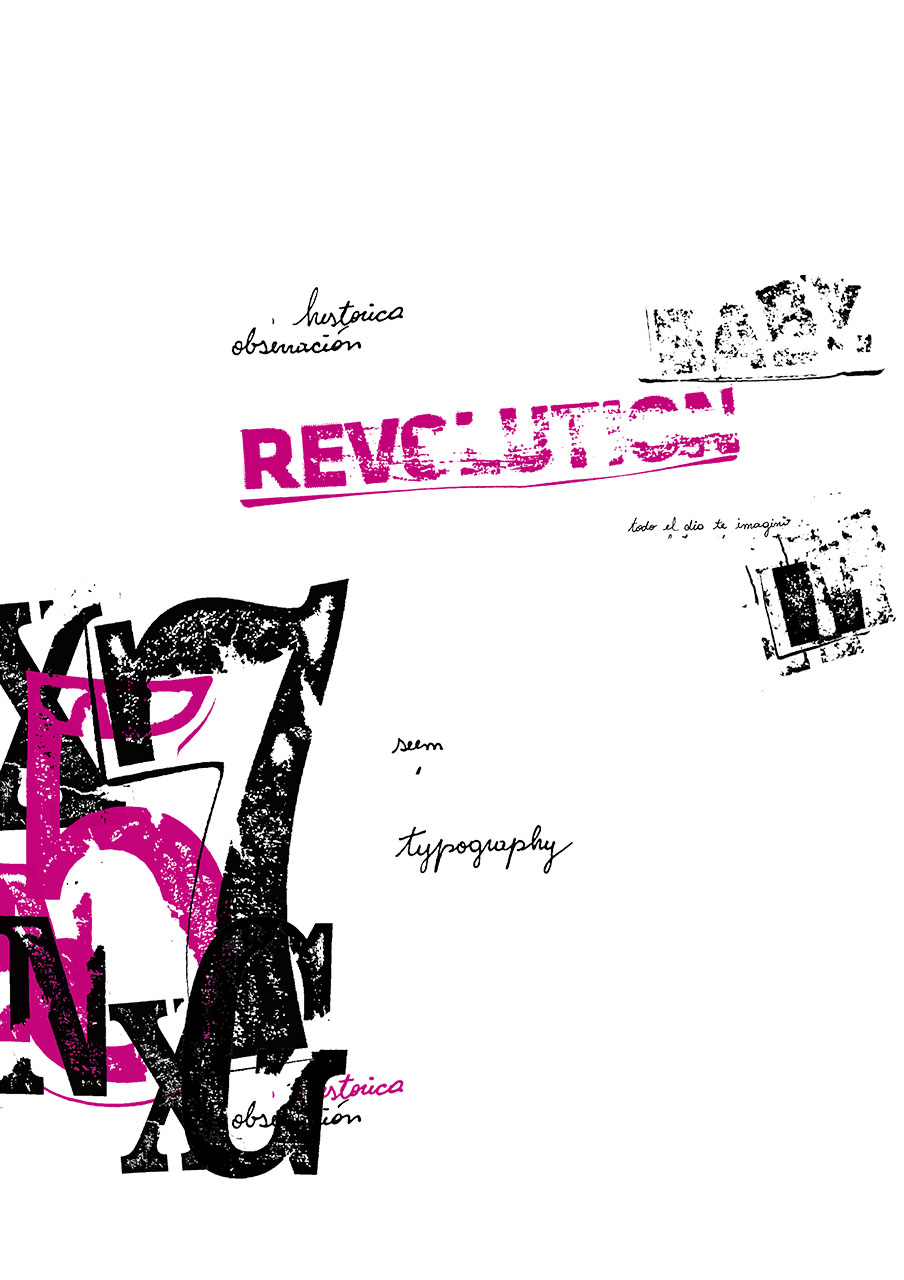 historica
obsenación
BABY.
REVOLUTION
todo el dia te imagini
X
7
h
seem
typography
N
X
G
storica
obse ión